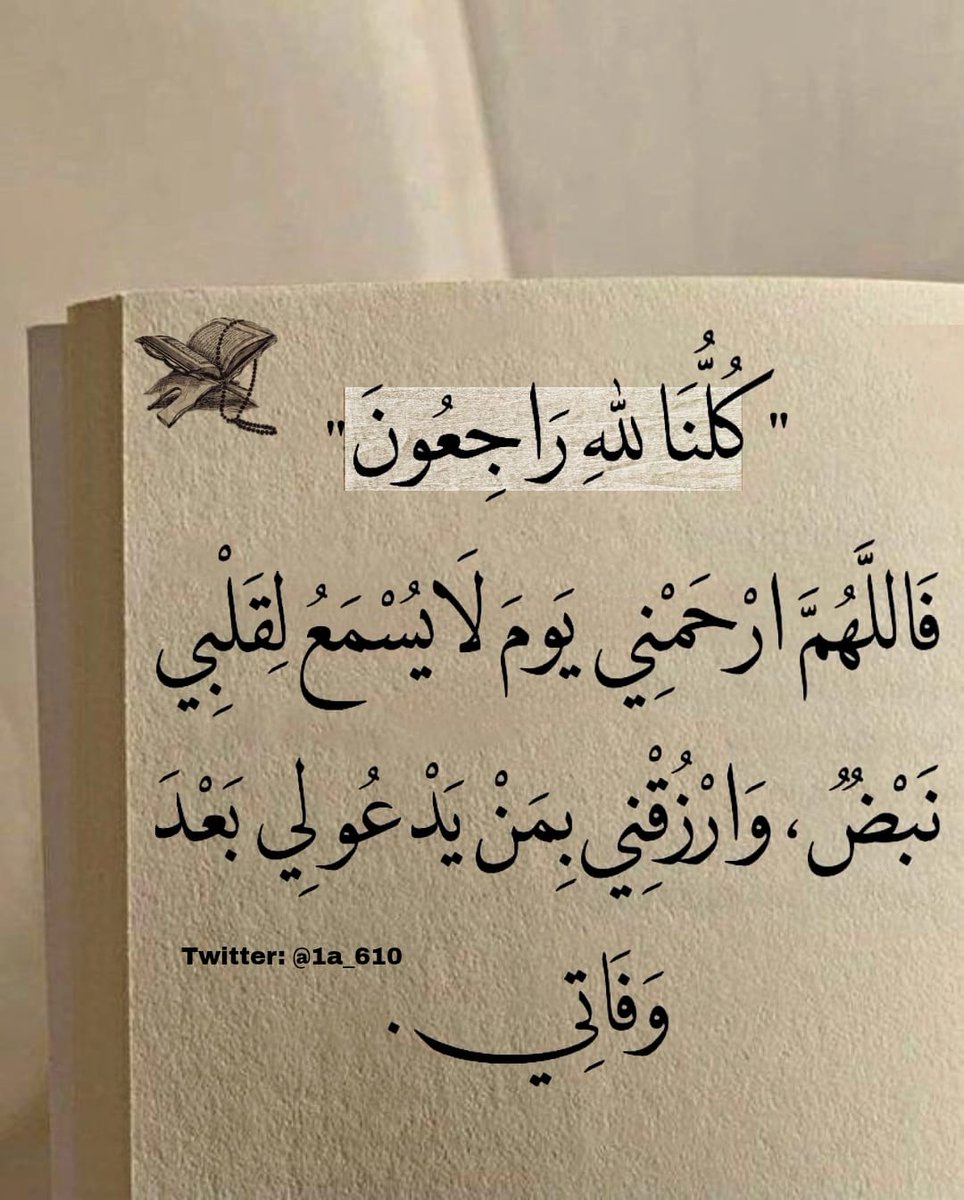 " كُلُّنَا لِلهِ رَاجِعُونَ "
فَاللَّهُمَّ ارْحَمْنِي يَومَ لَا يُسْمَعُ لِقَلْبِي
نَبْضٌ، وَارْزُقْنِي بِمَنْ يَدْعُو لِي بَعْدَ
Twitter: @1a_610
وَفَاتِي.